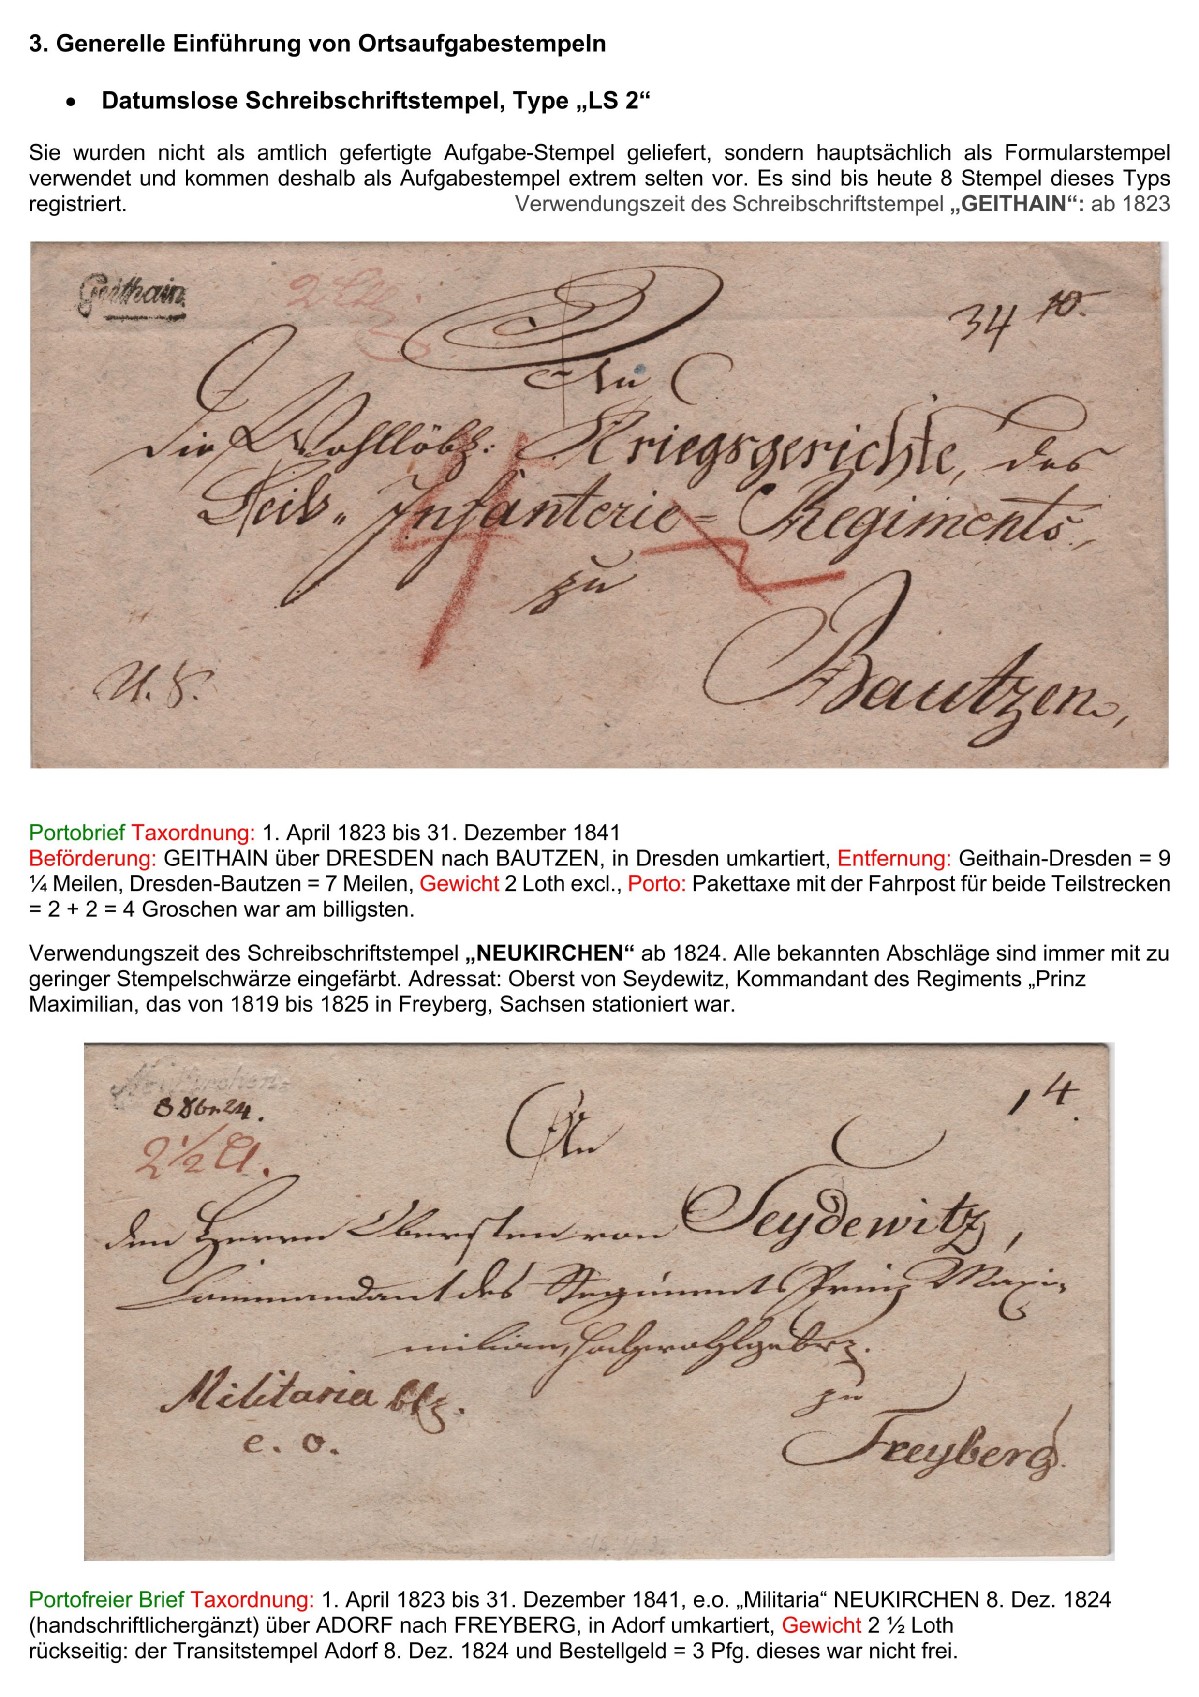 3. Generelle Einführung von Ortsaufgabestempeln
• Datumslose Schreibschriftstempel, Type „LS 2“
Sie wurden nicht als amtlich gefertigte Aufgabe-Stempel geliefert, sondern hauptsächlich als Formularstempel
verwendet und kommen deshalb als Aufgabestempel extrem selten vor. Es sind bis heute 8 Stempel dieses Typs
registriert. Verwendungszeit des Schreibschriftstempel „GEITHAIN“: ab 1823
Geithain
34 10.
An
die Wohllöbl: Kriegsgerichte, des
Infanterie=Regiments,
4
zu
Bautzen,
Portobrief Taxordnung: 1. April 1823 bis 31. Dezember 1841
Beförderung: GEITHAIN über DRESDEN nach BAUTZEN, in Dresden umkartiert, Entfernung: Geithain-Dresden = 9
¼ Meilen, Dresden-Bautzen = 7 Meilen, Gewicht 2 Loth excl., Porto: Pakettaxe mit der Fahrpost für beide Teilstrecken
= 2 + 2 = 4 Groschen war am billigsten.
Verwendungszeit des Schreibschriftstempel „NEUKIRCHEN“ ab 1824. Alle bekannten Abschläge sind immer mit zu
geringer Stempelschwärze eingefärbt. Adressat: Oberst von Seydewitz, Kommandant des Regiments „Prinz
Maximilian, das von 1819 bis 1825 in Freyberg, Sachsen stationiert war.
Neukirchen
8 Xbr 24.
14.
2½
An
den Herrn Obersten von Seydewitz,
Commandant des Regiments Prinz Maxi-
milian, Hochwohlgebr.
Militaria
zu
e. o.
Freyberg.
Portofreier Brief Taxordnung: 1. April 1823 bis 31. Dezember 1841, e.o. „Militaria“ NEUKIRCHEN 8. Dez. 1824
(handschriftlichergänzt) über ADORF nach FREYBERG, in Adorf umkartiert, Gewicht 2 ½ Loth
rückseitig: der Transitstempel Adorf 8. Dez. 1824 und Bestellgeld = 3 Pfg. dieses war nicht frei.